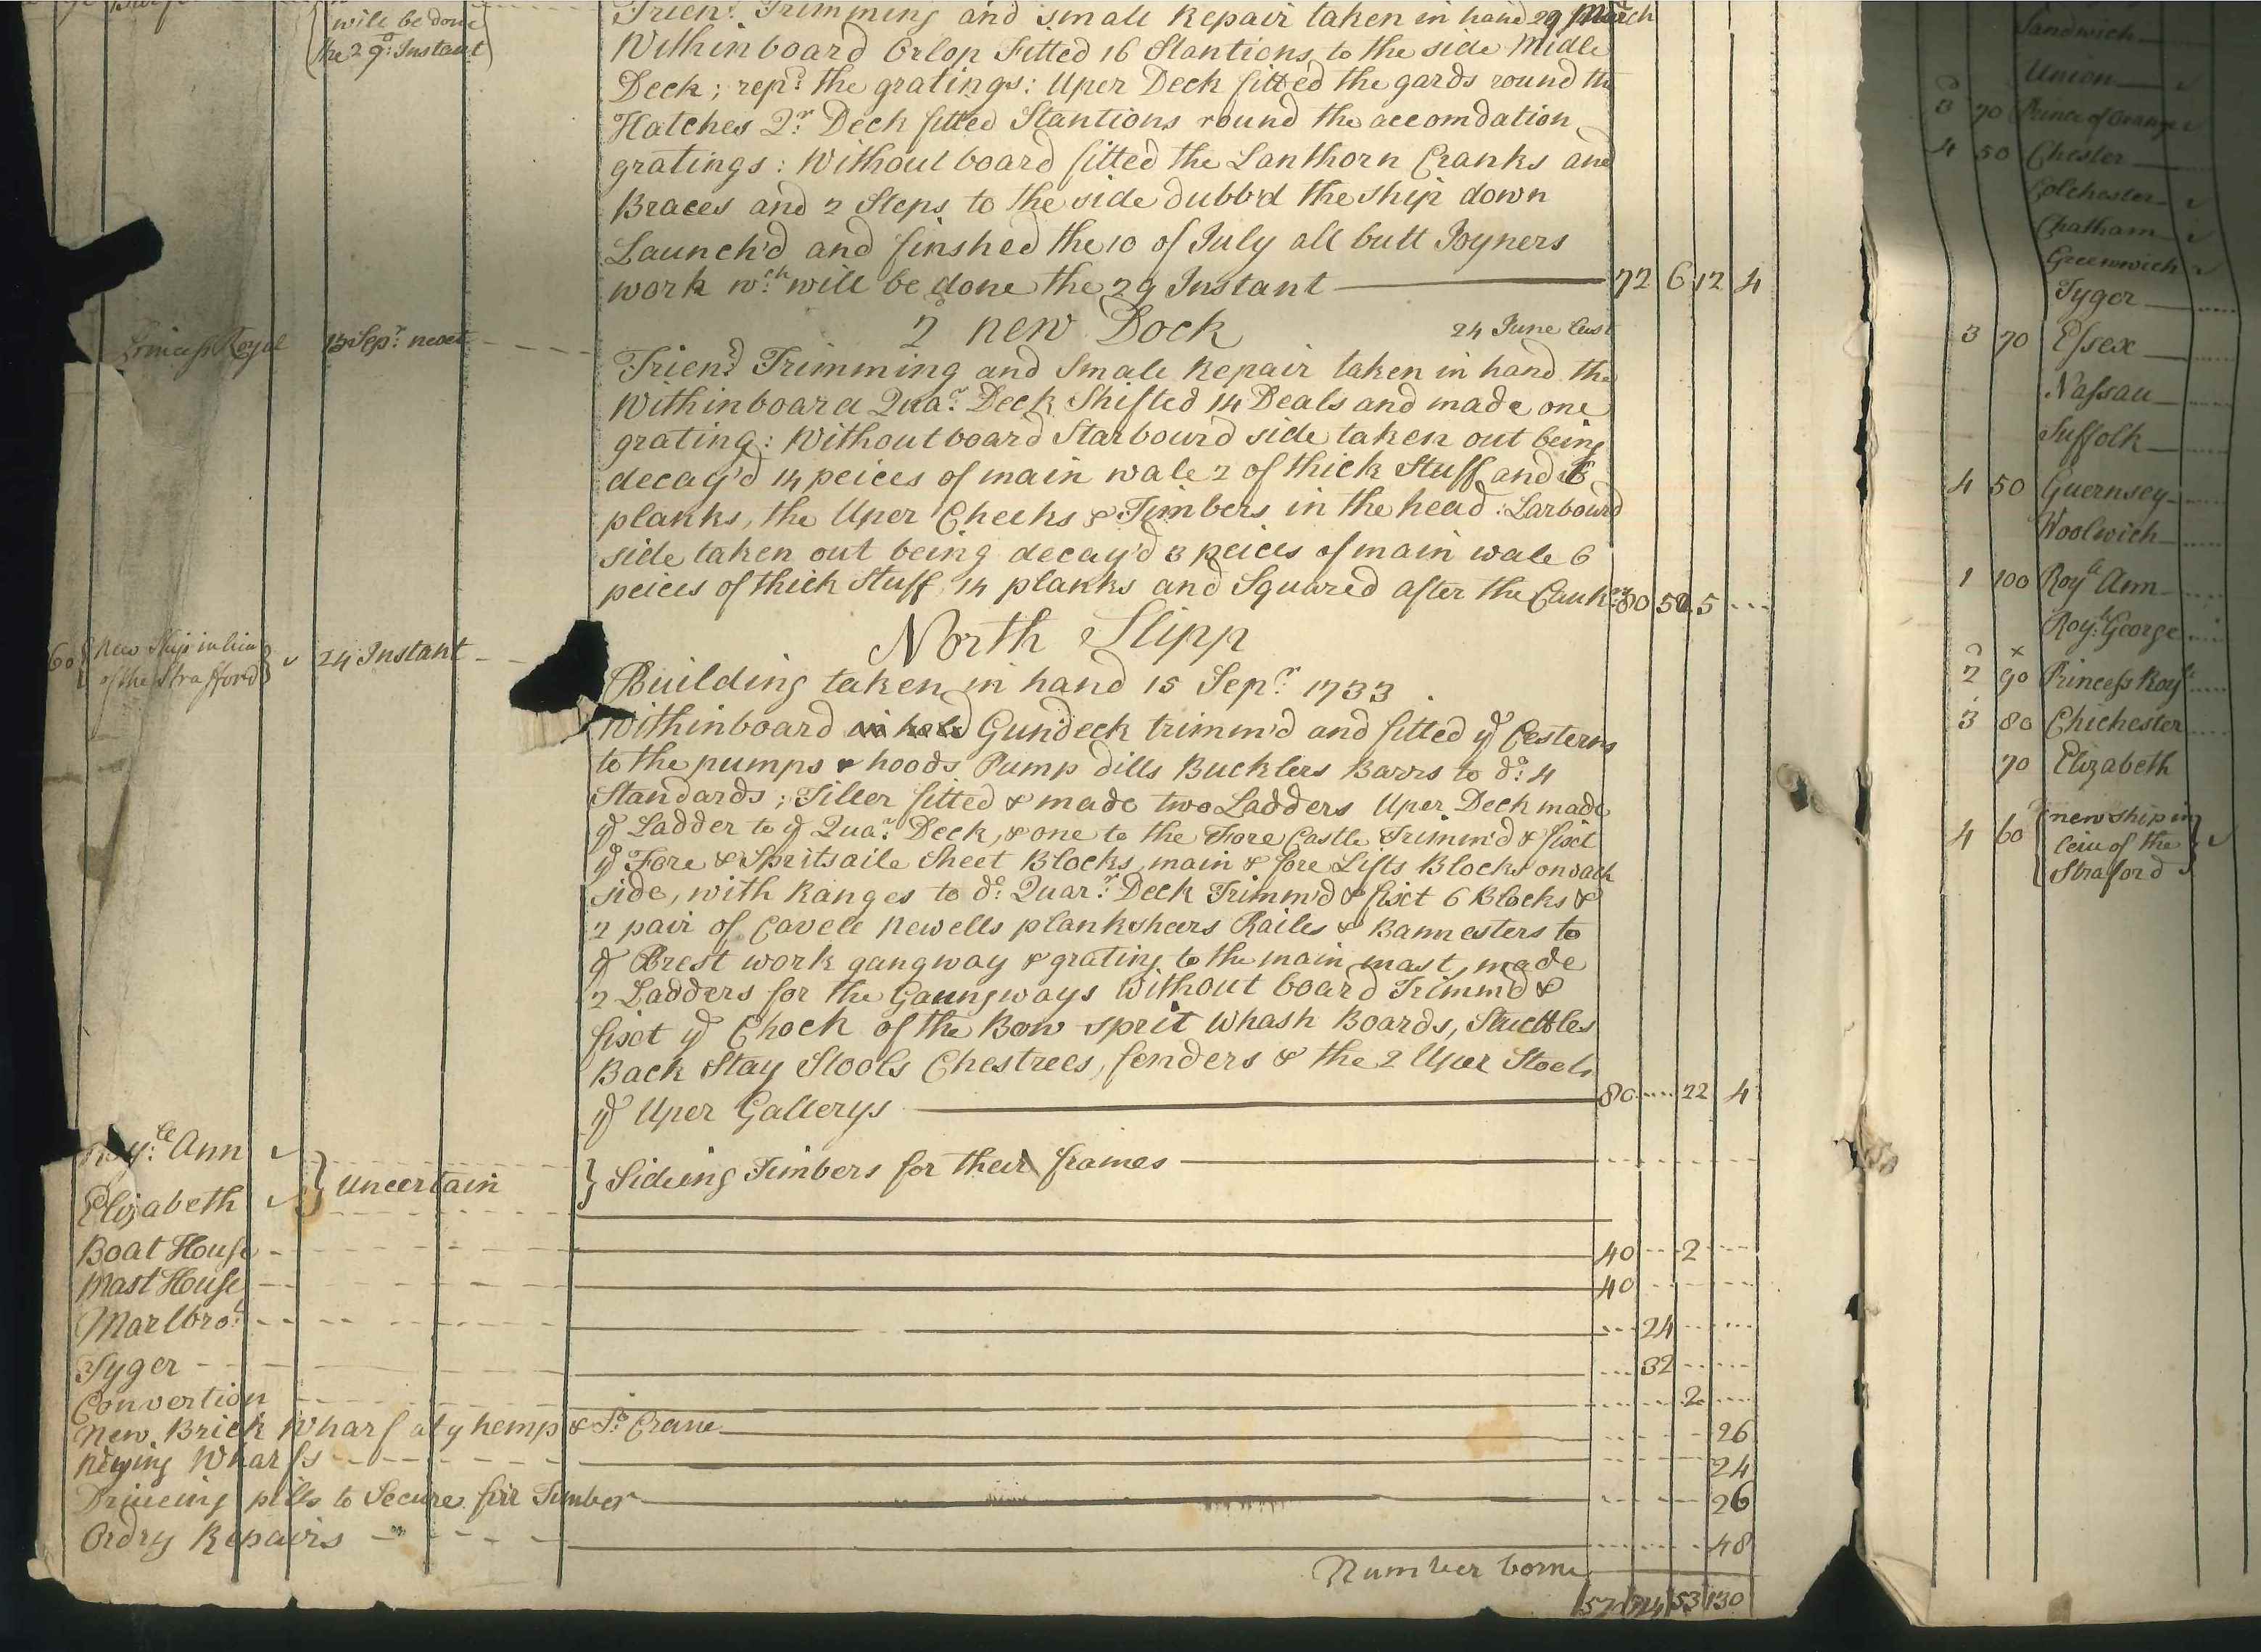 will be done
the 29: Instant
Trien:d Trimming and Smale Repair taken in hand 29 March
Withinboard Orlop Fitted 16 Stantions to the side Midle
Deck; rep:d the gratings: Uper Deck fitted the gards round the
Hatches Q:r Deck fitted Stantions round the accomdation
gratings: Without board fitted the Lanthorn Cranks and
Braces and 2 Steps to the side dubb'd the ship down
Launch'd and finshed the 10 of July all butt Joyners
work w:ch will be done the 29 Instant 72 6 12 4
2d new Dock 24 June last
Princess Royal 13 Sep:r next
Trien:d Trimming and Smale Repair taken in hand the
Withinboard Qua:r Deck Shifted 14 Deals and made one
grating: Without board Starbourd side taken out being
decay'd 14 peices of main wale 2 of thick Stuff and
planks, the Uper Cheeks & Timbers in the head: Larbourd
side taken out being decay'd 3 peices of main wale 6
peices of thick Stuff 14 planks and Squared after the Caulk:rs 80 5
North Slipp
60 New Ship in lieu of the Strafford 24 Instant
Building taken in hand 15 Sep:r 1733
Withinboard in hold Gundeck trimm'd and fitted ye Cesterns
to the pumps & hoods Pump dills Bucklers Barrs to do: 4
Standards; Tiller fitted & made two Ladders Uper Deck made
ye Ladder to ye Qua:r Deck, & one to the Fore Castle Trimm'd & fixt
ye Fore & Spritsaile Sheet Blocks, main & fore Lifts Blocks on each
side, with Ranges to do: Quar:r Deck Trimm'd & fixt 6 Blocks &
2 pair of Cavele Newells planksheers Railes & Bannesters to
ye Brest work gangway & grating to the main mast, made
2 Ladders for the Gaungways Without board Trimm'd &
fixt ye Chock of the Bow sprit Whash Boards, Skuttles
Back Stay Stools Chestrees, fenders & the 2 Uper Stools
ye Uper Gallerys 80 22 4
Roy:le Ann
Elizabeth
Uncertain
Sideing Timbers for their frames
Boat House 40 2
Mast House 40
Marlbro:' 24
Tyger 32
Convertion 2
New Brick Wharf at ye hemp & Crane 26
New Wharfs 24
Driveing pills to Secure firr Timber 26
Ordry Repairs 48
Number borne
53 130
Sandwich
Union
3 70 Prince of Orange
4 50 Chester
Colchester
Chatham
Greenwich
Tyger
3 70 Essex
Nassau
Suffolk
4 50 Guernsey
Woolwich
1 100 Roy:l Ann
Roy:l George
2 90 Princess Roy:l
3 80 Chichester
70 Elizabeth
4 60 new ship in
leiu of the
Straford